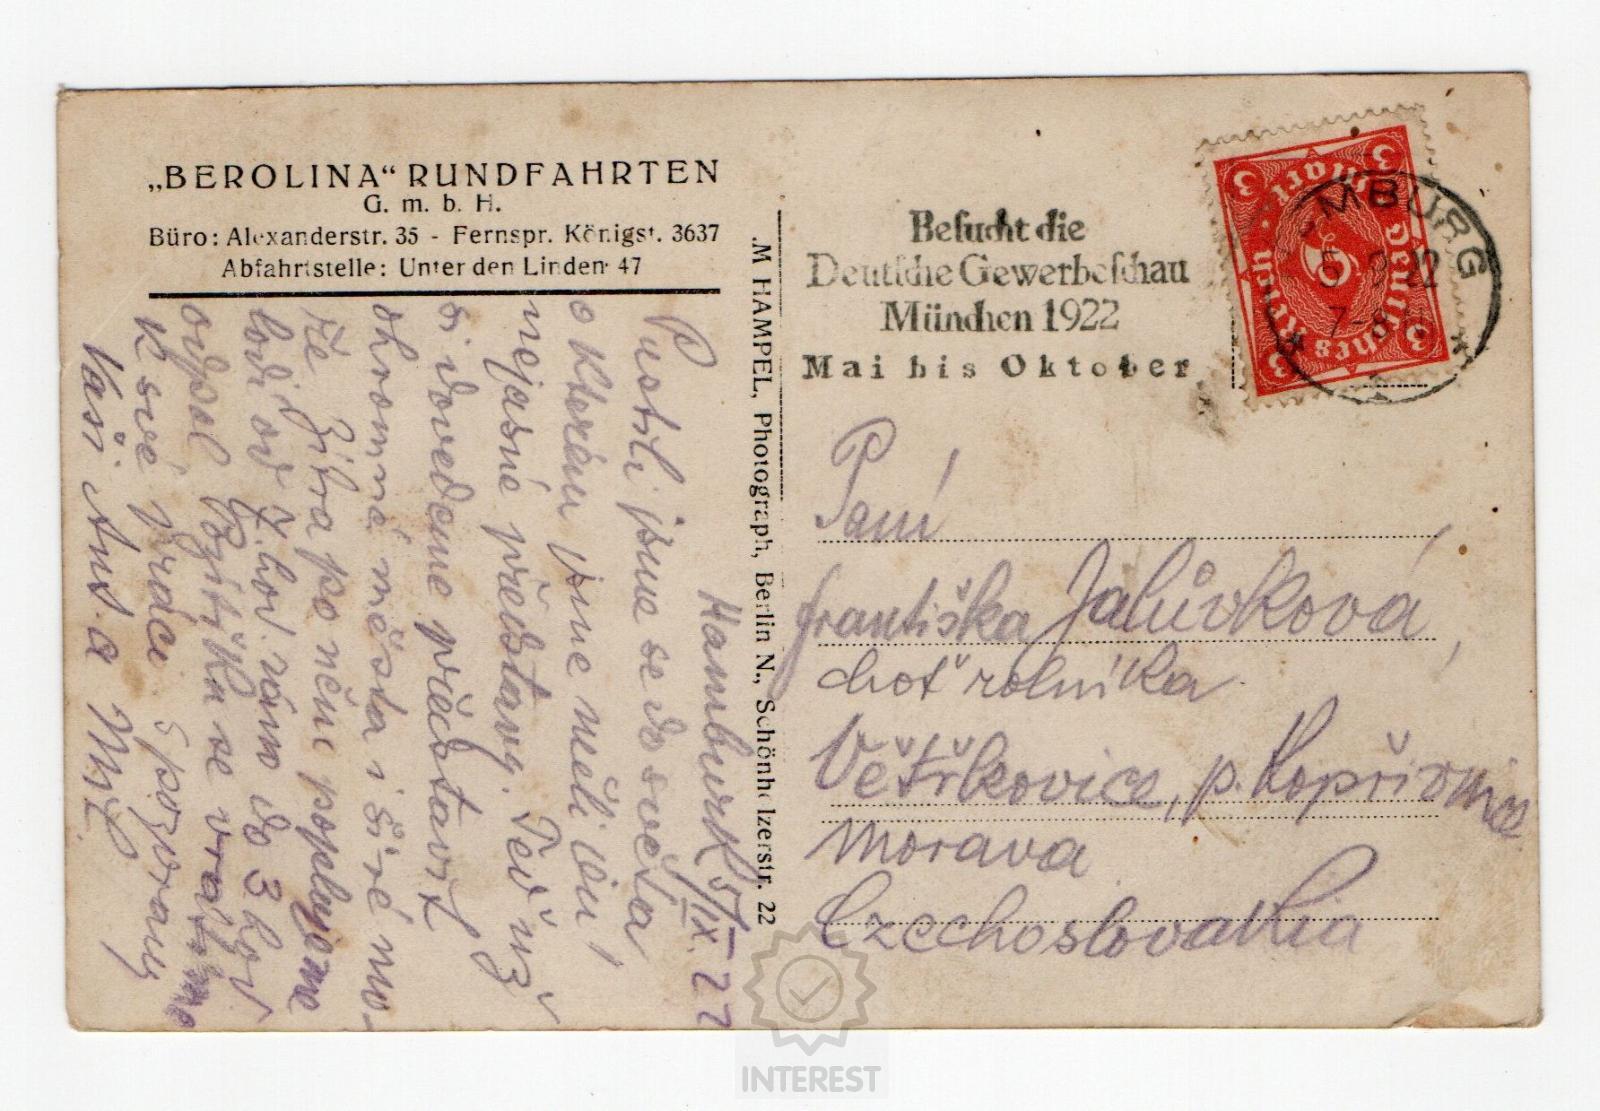 „BEROLINA“ RUNDFAHRTEN
G. m. b. H.
Büro: Alexanderstr. 35 - Fernspr. Königst. 3637
Abfahrtstelle: Unter den Linden 47
M HAMPEL, Photograph, Berlin N., Schönholzerstr. 22
Besucht die
Deutsche Gewerbeschau
München 1922
Mai bis Oktober
MBURG
5 9 22
7-8
3 Mark 3
Deutsches Reich
3 3
Hamburk 5/IX. 22
Pustili jsme se do světa
o kterém jsme měli
nejasné představy. Teď už
si dovedeme představit
ohromná města i širé mo-
ře. Zítra po něm poplujeme
lodí od 7. hod. ráno do 3 hod
odpol. Pozítřku se vrátíme
k své práce. S pozdravy
Vaši a Mil
Paní
Františka Jalůvková,
choť rolníka
Větřkovice, p. Kopřivnice
Morava
Czechoslovakia
INTEREST